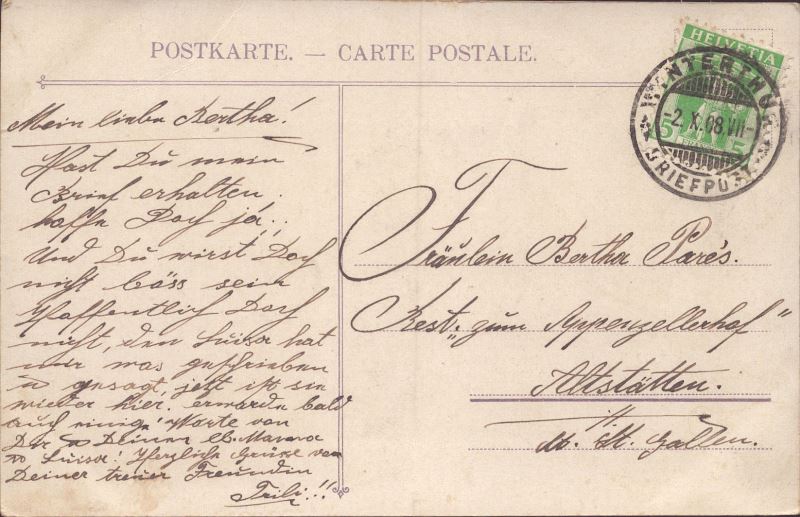 POSTKARTE. — CARTE POSTALE.
HELVETIA
WINTERTHUR
-2.X.08.VII-
BRIEFPOST
5 5
Mein liebe Bertha!
Hast Du mein
Brief erhalten.
hoffe Doch ja..
Und Du wirst Doch
nicht böss sein
Hoffentlich Doch
nicht, den Luisa hat
mir was geschrieben
u gesagt, jetzt ist sie
wieder hier. erwarde bald
auch einige Worte von
Dir u Deiner lb. Mama
Luisa! Herzlich Grüsse von
Deiner treuer Freundin
Trili!!
Fräulein Bertha Parés.
Rest. „zum Appenzellerhof"
Altstätten.
St. Gallen.